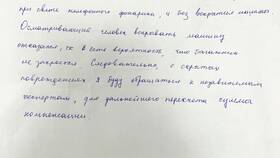 при свете телефонного фонарика, и без вскрытия машины
Осматривающий человек вскрывать машину
отказался, т.к. есть вероятность, что багажник
не закроется. Следовательно, о скрытых
повреждениях я буду обращаться к независимым
экспертам, для дальнейшего пересчета суммы
компенсации.